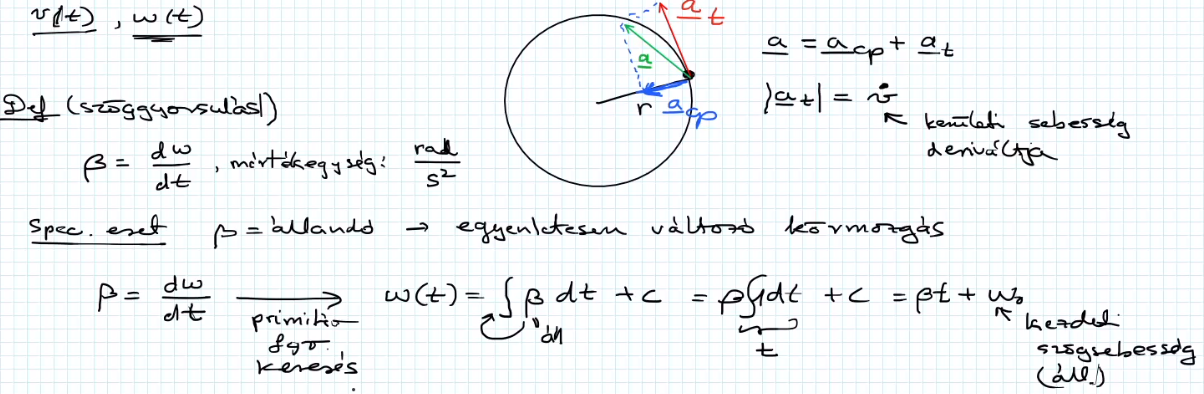 v(t), ω(t)
a t
a
r
a cp
a = a cp + a t
|a t| = v̇
kerületi sebesség
deriváltja
Def (szöggyorsulás)
β = dω/dt, mértékegység: rad/s²
Spec. eset β = állandó → egyenletesen változó körmozgás
β = dω/dt → ω(t) = ∫ β dt + c = β ∫ 1 dt + c = βt + ω₀
primitív
fgv.
keresés
áll
t
kezdeti
szögsebesség
(áll.)